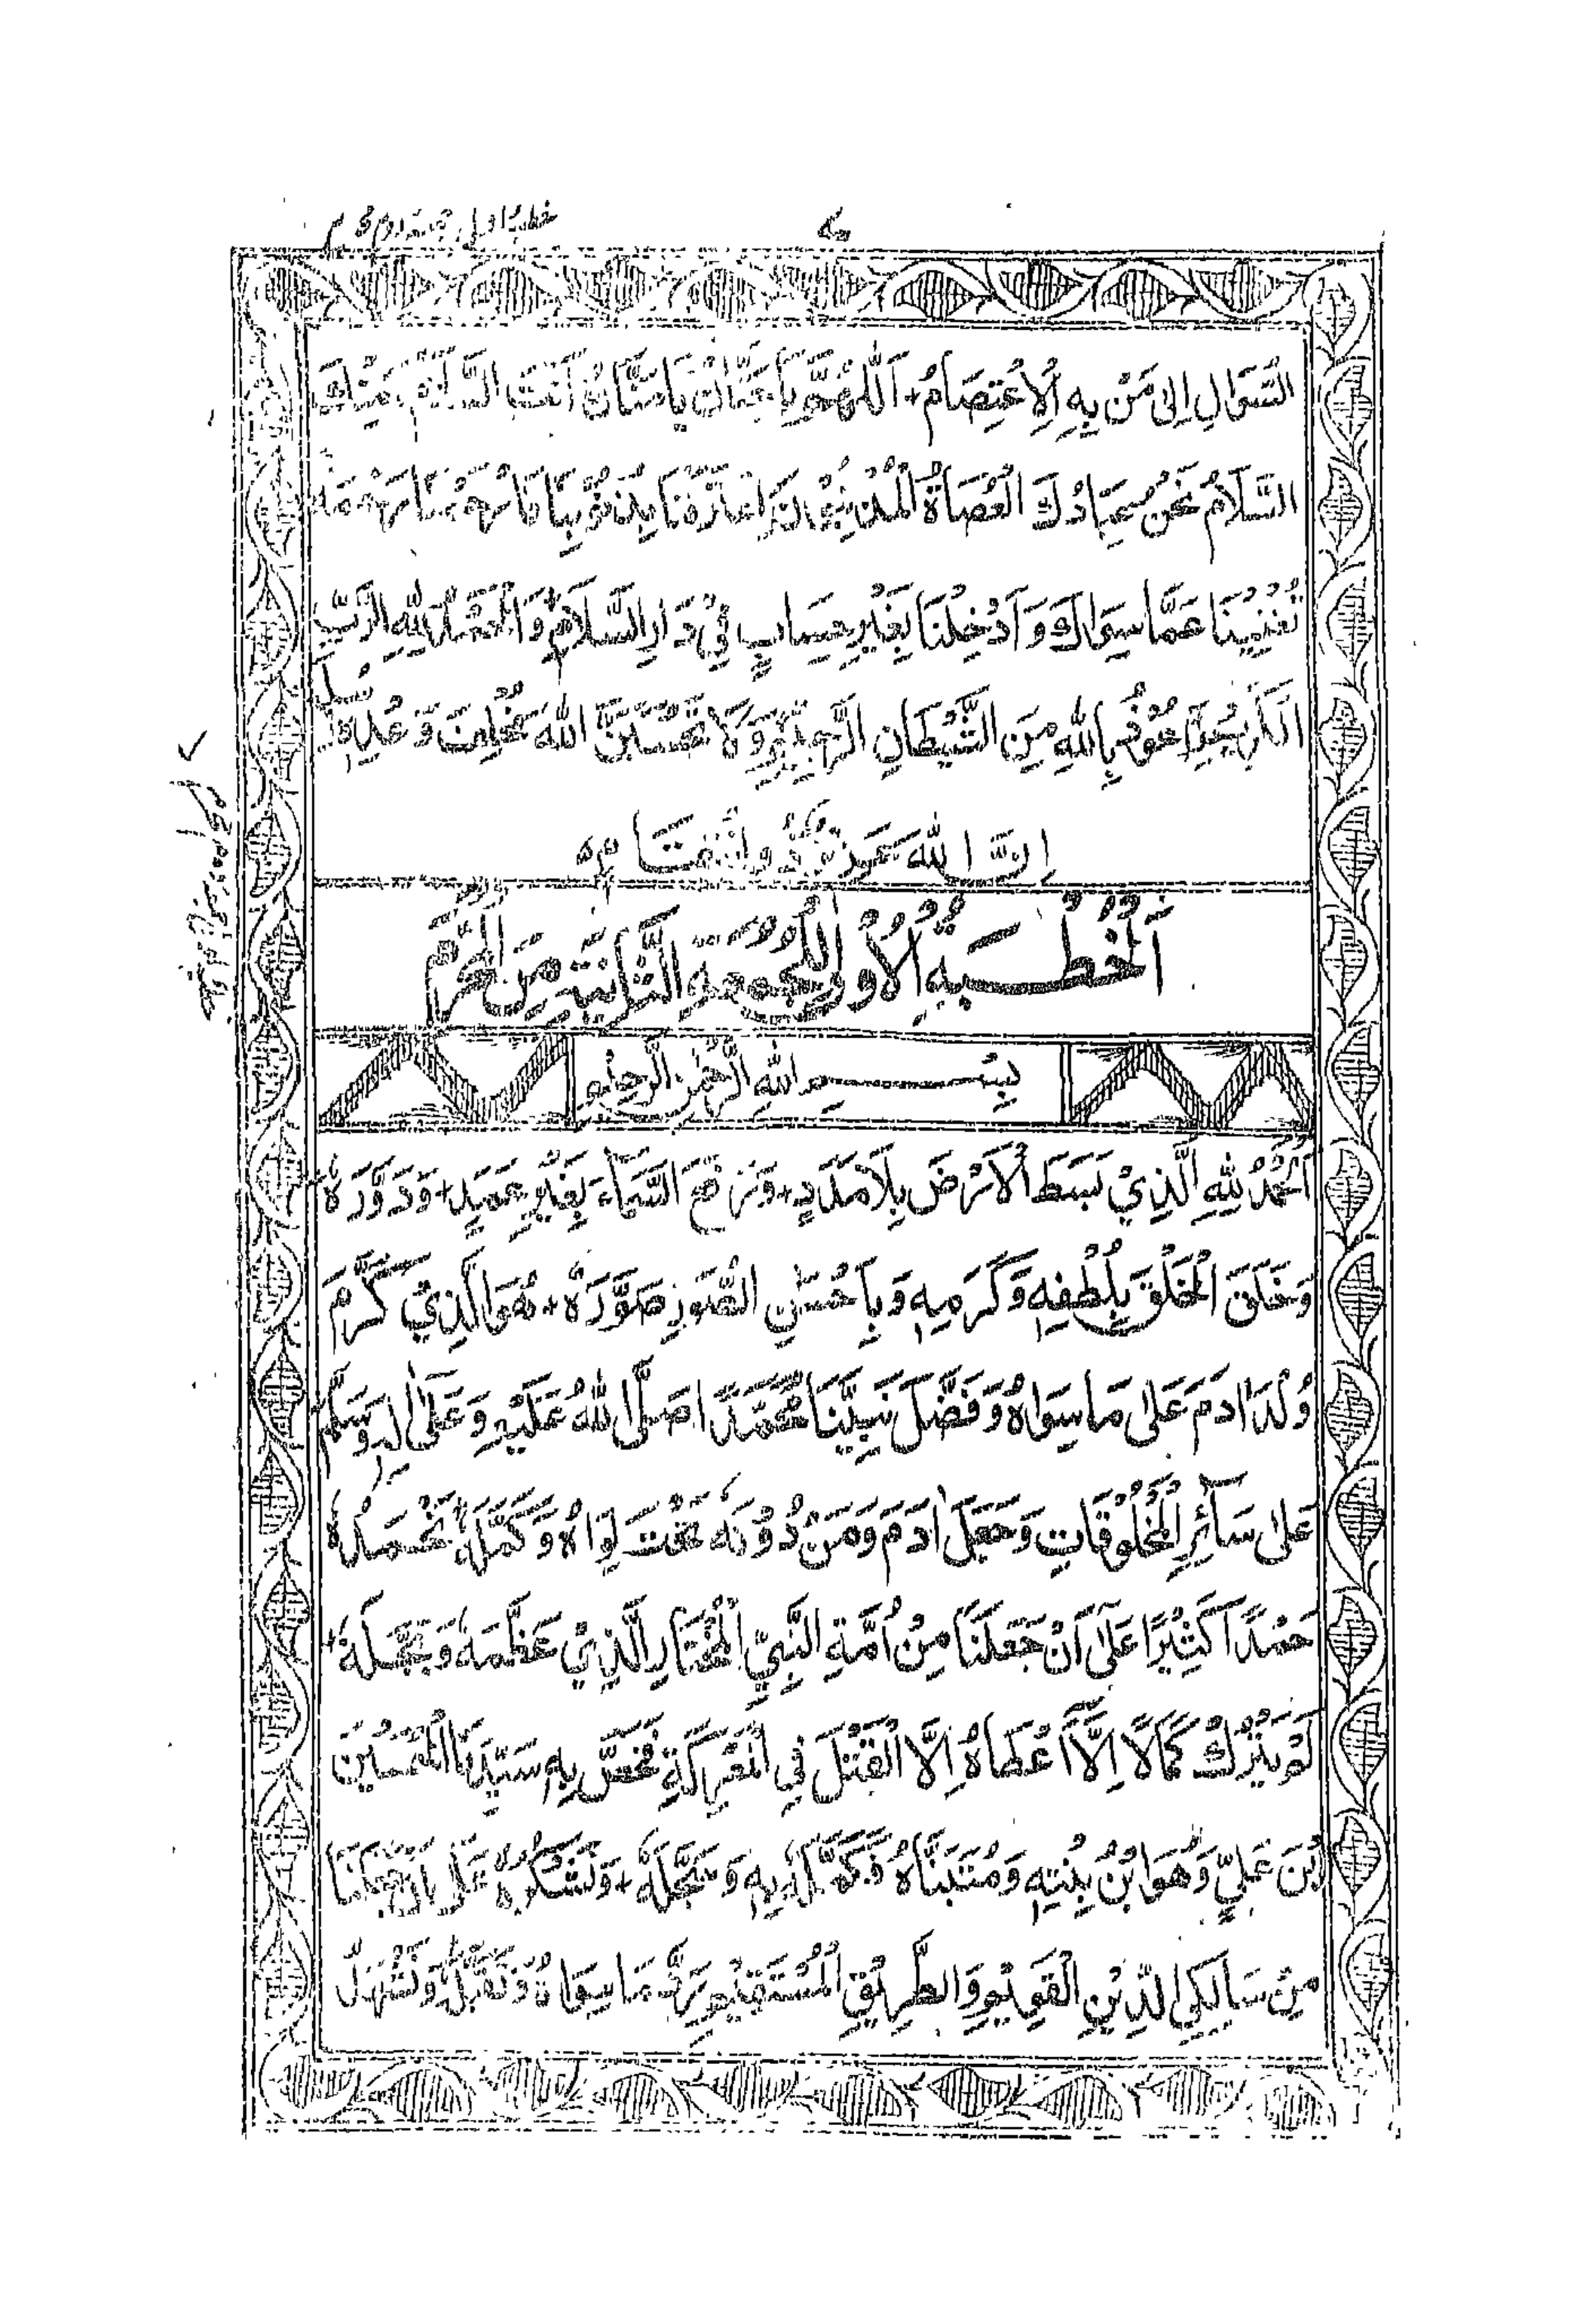 السَّوَالِ اِلىٰ مَنْ بِهِ الْاِعْتِصَامُ + اَللّٰهُمَّ يَا حَنَّانُ يَا مَنَّانُ اَنْتَ السَّلَامُ وَمِنْكَ
السَّلَامُ نَحْنُ عِبَادُكَ الْعُصَاةُ الْمُذْنِبُوْنَ اعْتَرَفْنَا بِذُنُوْبِنَا فَارْحَمْنَا رَحْمَةً
تُغْنِيْنَا عَمَّا سِوَاكَ وَ اَدْخِلْنَا بِغَيْرِ حِسَابٍ فِيْ دَارِ السَّلَامِ وَالْحَمْدُ لِلّٰهِ الرَّبِّ
الْكَرِيْمِ اَعُوْذُ بِاللهِ مِنَ الشَّيْطَانِ الرَّجِيْمِ وَلَا تَحْسَبَنَّ اللهَ مُخْلِفَ وَعْدِهٖ رُسُلَهُ
اِنَّ اللهَ عَزِيْزٌ ذُو انْتِقَامٍ
اَلْخُطْبَةُ الْاُوْلٰى لِلْجُمُعَةِ الثَّانِيَةِ مِنَ الْمُحَرَّمِ
بِسْمِ اللهِ الرَّحْمٰنِ الرَّحِيْمِ
اَلْحَمْدُ لِلّٰهِ الَّذِيْ بَسَطَ الْاَرْضَ بِلَا مَدَدٍ + وَرَفَعَ السَّمَاءَ بِغَيْرِ عَمَدٍ + وَدَوَّرَهُ +
وَخَلَقَ الْخَلْقَ بِلُطْفِهٖ وَكَرَمِهٖ وَبِاَحْسَنِ الصُّوَرِ صَوَّرَهُ + هُوَ الَّذِيْ كَرَّمَ
وُلْدَ اٰدَمَ عَلىٰ مَا سِوَاهُ وَفَضَّلَ نَبِيَّنَا مُحَمَّدًا صَلَّى اللهُ عَلَيْهِ وَعَلىٰ اٰلِهٖ وَسَلَّمَ
عَلىٰ سَآئِرِ الْمَخْلُوْقَاتِ وَجَعَلَ اٰدَمَ وَمَنْ دُوْنَهُ تَحْتَ لِوَاهُ وَكَمَّلَهُ نَحْمَدُهُ
حَمْدًا كَثِيْرًا عَلىٰ اَنْ جَعَلَنَا مِنْ اُمَّةِ النَّبِيِّ الْمُخْتَارِ الَّذِيْ عَظَّمَهُ وَبَجَّلَهُ +
لَمْ يَتْرُكْ كَمَالًا اِلَّا اَعْطَاهُ اِلَّا الْقَتْلَ فِي الْمَعْرِكَةِ فَخَصَّ بِهٖ سَيِّدَنَا الْحُسَيْنَ
ابْنَ عَلِيٍّ وَهُوَ ابْنُ بِنْتِهٖ وَمُتَبَنَّاهُ فَكَمَّلَهُ بِهٖ وَبَجَّلَهُ + وَنَشْكُرُهُ عَلىٰ اَنْ جَعَلَنَا
مِنْ سَالِكِي الدِّيْنِ الْقَوِيْمِ وَالطَّرِيْقِ الْمُسْتَقِيْمِ مَا سِوَاهُ وَنَشْهَدُ